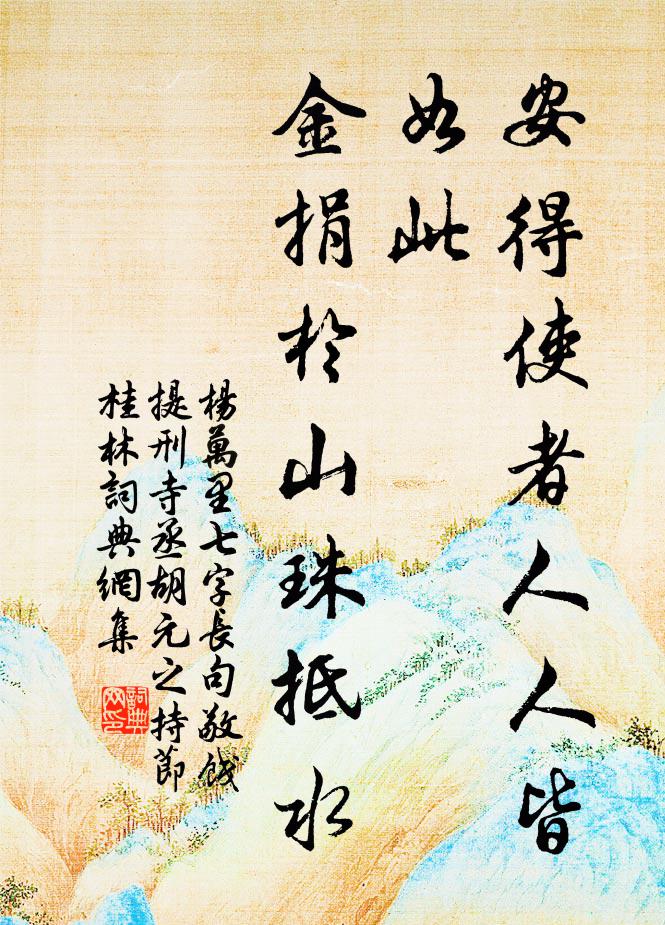 安得使者人人皆
如此
金捐於山珠抵水
楊萬里七字長句敬餞
提刑寺丞胡元之持節
桂林詞典網集
詞典網印